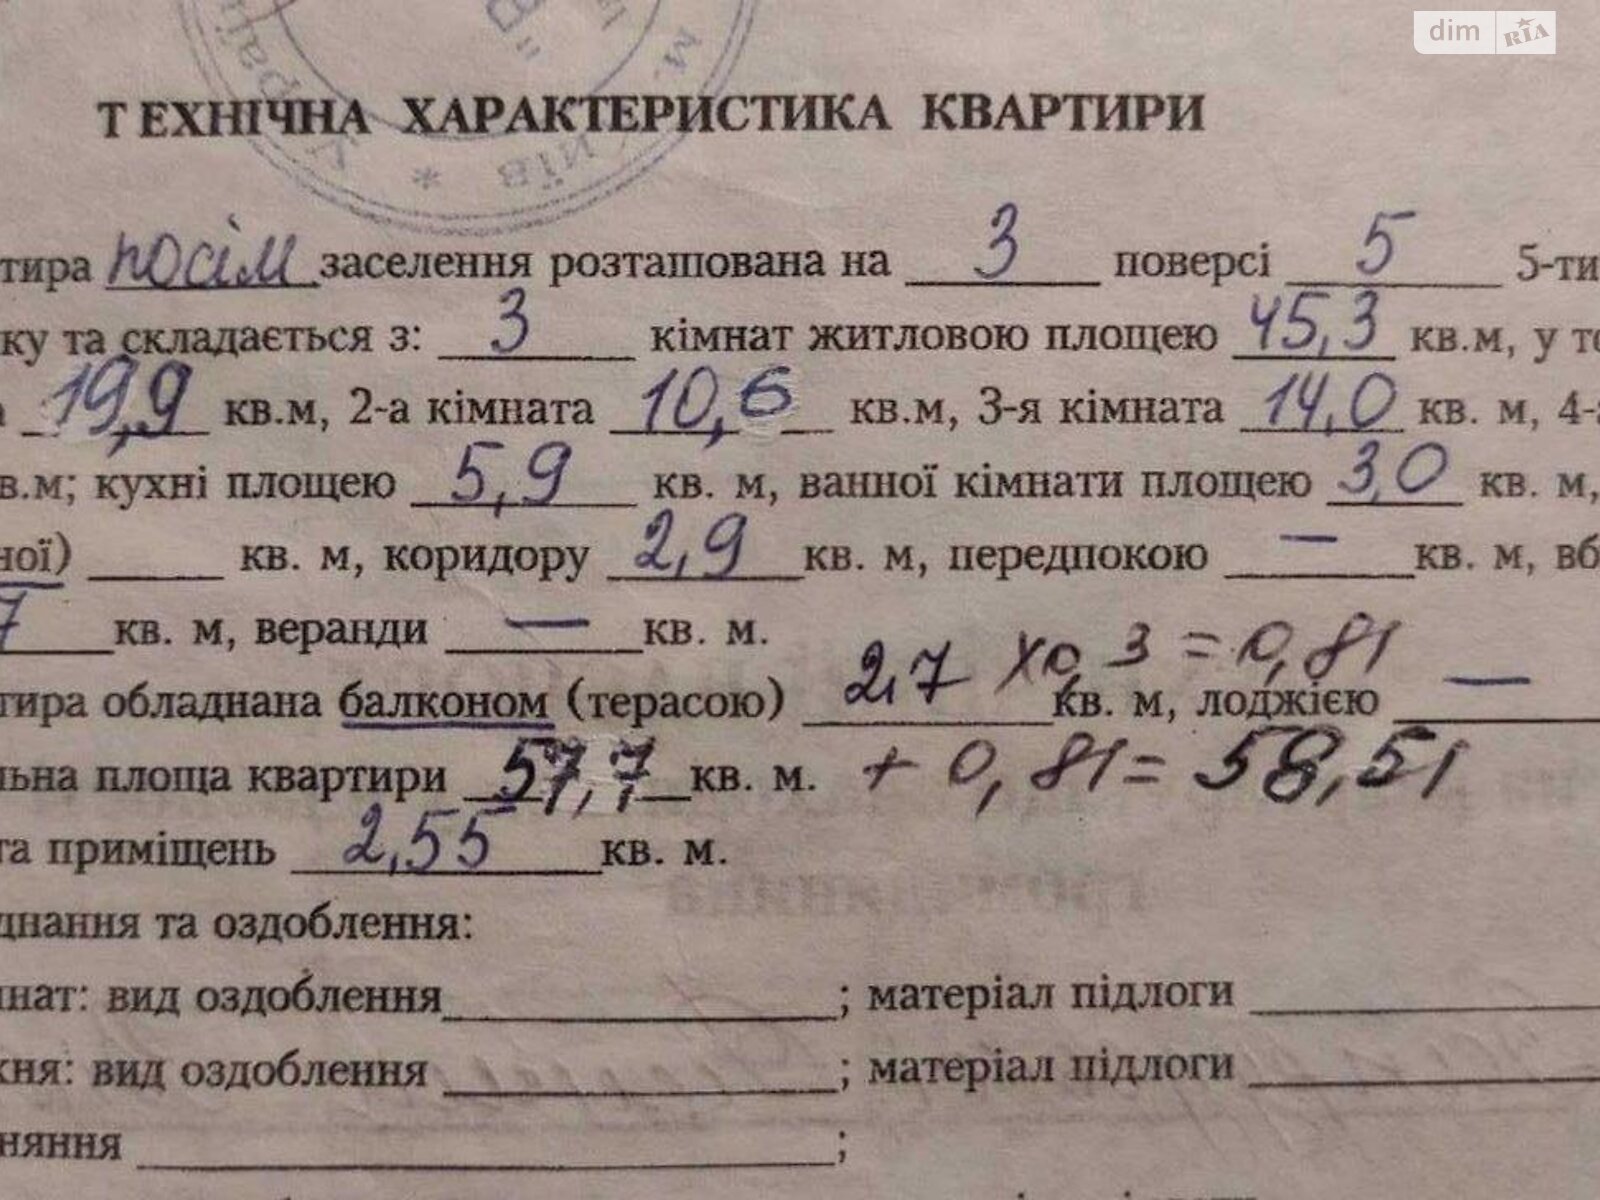 dim RIA
ТЕХНІЧНА ХАРАКТЕРИСТИКА КВАРТИРИ
тира посім. заселення розташована на 3 поверсі 5 5-ти
ку та складається з: 3 кімнат житловою площею 45,3 кв.м, у то
19,9 кв.м, 2-а кімната 10,6 кв.м, 3-я кімната 14,0 кв. м, 4-
в.м; кухні площею 5,9 кв. м, ванної кімнати площею 3,0 кв. м,
ної) кв. м, коридору 2,9 кв. м, передпокою — кв. м, вб
7 кв. м, веранди — кв. м.
тира обладнана балконом (терасою) 2,7 х0,3 = 0,81 кв. м, лоджією —
льна площа квартири 57,7 кв. м. + 0,81 = 58,51
та приміщень 2,55 кв. м.
днання та оздоблення:
нат: вид оздоблення ; матеріал підлоги
хня: вид оздоблення ; матеріал підлоги
няння ;